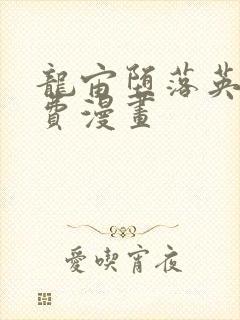 龍宙堕落英
費漫畫
愛喫宵夜